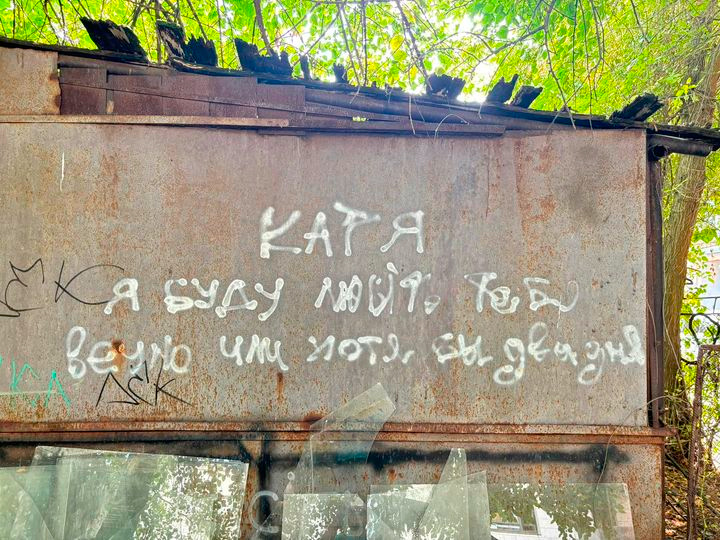 КАТЯ
Я БУДУ ЛЮБИТЬ ТеБЯ
вечно или хотя бы два дня
ДЕК